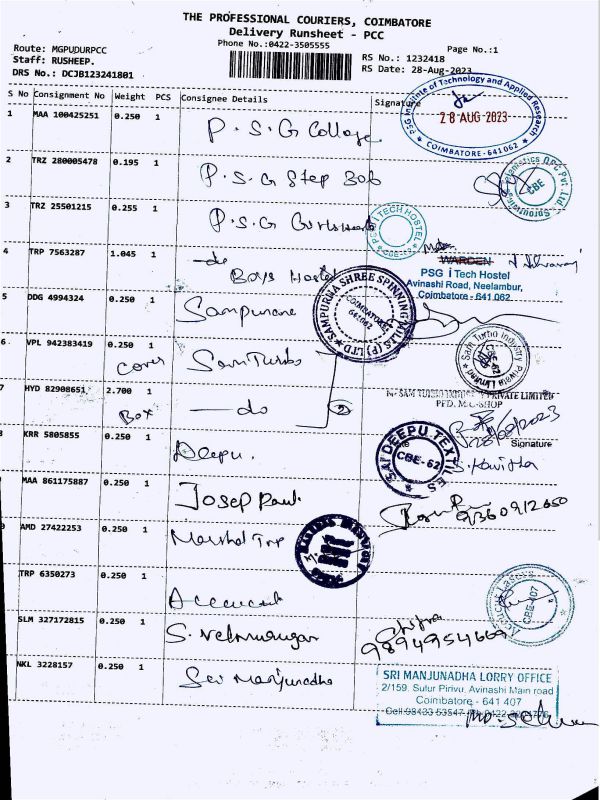 THE PROFESSIONAL COURIERS, COIMBATORE
Delivery Runsheet - PCC
Phone No.:0422-3505555
Page No.:1
Route: MGPUDURPCC
Staff: RUSHEEP.
DRS No.: DCJB123241801
RS No.: 1232418
RS Date: 28-Aug-2023
S No Consignment No Weight PCS Consignee Details Signature
1 MAA 100425251 0.250 1 P.S.G College
PSG Institute of Technology and Applied Research
28 AUG 2023
COIMBATORE - 641 062
2 TRZ 280005478 0.195 1 P.S.G Step
CBE
3 TRZ 25501215 0.255 1 P.S.G Girls
PSG i TECH HOSTEL
4 TRP 7563287 1.045 1 - do
Boys Hostel
WARDEN
PSG i Tech Hostel
Avinashi Road, Neelambur,
Coimbatore - 641 062
5 DDG 4994324 0.250 1 Sampurna
SAMPURNA SHREE SPINNING MILLS (P) LTD
COIMBATORE
641 062
6 VPL 942383419 0.250 1 Sam Turbo
Cover
Sam Turbo Industry Private Limited
7 HYD 82908651 2.700 1 - do
Box
M/s SAM TURBO INDUSTRY PRIVATE LIMITED
PFD. M/C-SHOP
28/08/2023
8 KRR 5805855 0.250 1 Deepu.
SAI DEEPU TEXTILES
CBE-62
Signature
S. Kavitha
MAA 861175887 0.250 1 Josep Paul
9360912650
AMD 27422253 0.250 1 Marshal Trp
TRP 6350273 0.250 1
SLM 327172815 0.250 1
9894954669
NKL 3228157 0.250 1 Sri Manjunadha
SRI MANJUNADHA LORRY OFFICE
2/159, Sulur Pirivu, Avinashi Main road
Coimbatore - 641 407